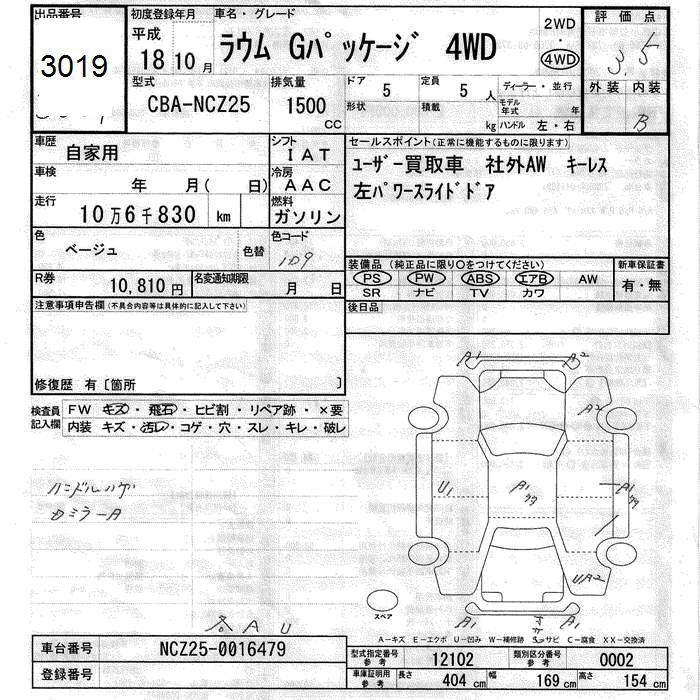 出品番号
3019
初度登録年月
平成
18 10 月
車名・グレード
ラウム Gパッケージ 4WD
2WD
・
4WD
評価点
3.5
外装 内装
B
型式
CBA-NCZ25
排気量
1500
cc
ドア
5
定員
5 人
形状
積載
kg
ディーラー・並行
モデル年式 年
ハンドル 左・右
車歴
自家用
シフト
IAT
車検
年 月( 日)
冷房
AAC
走行
10万6千830 km
燃料
ガソリン
色
ベージュ
色替
色コード
109
R券
10,810 円
名変通知期限
月 日
セールスポイント(正常に機能するものに限ります)
ユーザー買取車 社外AW キーレス
左パワースライドドア
装備品(純正品に限り○をつけてください)
PS PW ABS エアB AW
SR ナビ TV カワ
新車保証書
有・無
後日品
注意事項申告欄(不具合内容等は具体的に記入して下さい)
修復歴 有〔箇所 〕
検査員
記入欄
FW キズ・飛石・ヒビ割・リペア跡・×要
内装 キズ・汚レ・コゲ・穴・スレ・キレ・破レ
ハンドルハゲ
ロミラーA
A1 A2
A2
U1
A1
A1
UA2
A1 A1
スペア
A U
A-キズ E-エクボ U-凹み W-補修跡 S-サビ C-腐食 XX-交換済
車台番号
NCZ25-0016479
登録番号
型式指定番号
参考
12102
類別区分番号
参考
0002
車庫証明用
参考
長さ 404 cm 幅 169 cm 高さ 154 cm